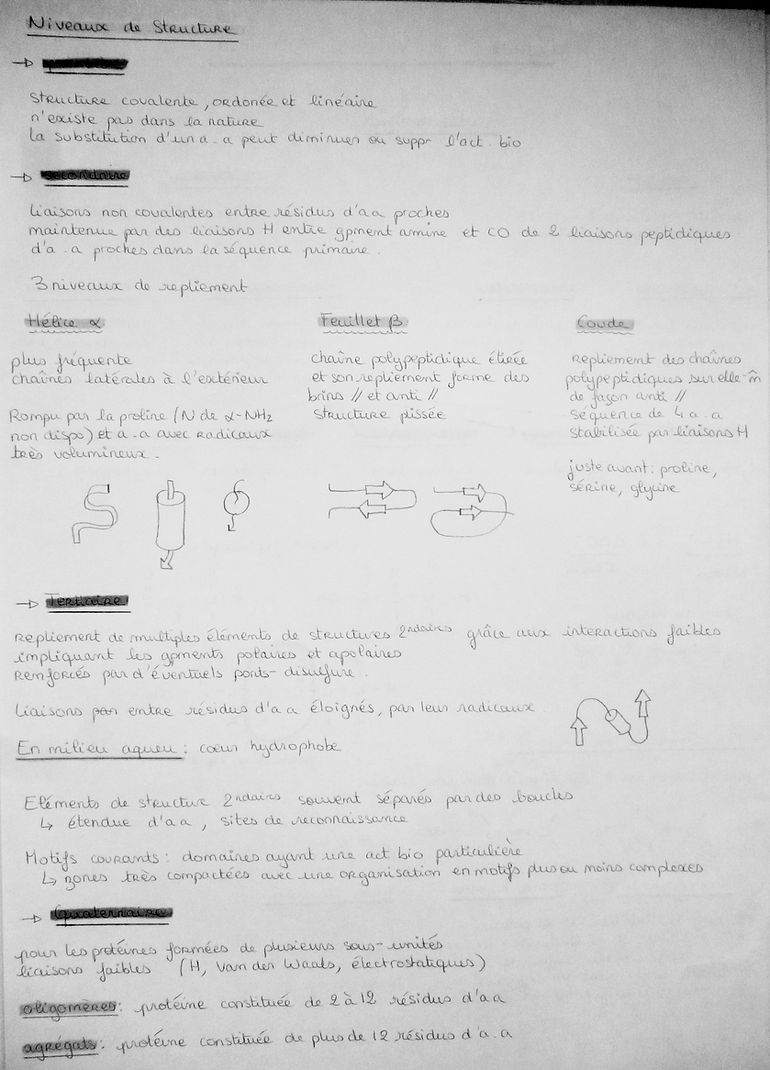 Niveaux de Structure
→
Structure covalente, ordonée et linéaire
n'existe pas dans la nature
la substitution d'un a.a peut diminuer ou suppr l'act. bio
→ secondaire
liaisons non covalentes entre résidus d'aa proches
maintenue par des liaisons H entre gpment amine et CO de 2 liaisons peptidiques
d'a.a proches dans la séquence primaire.
3 niveaux de repliement
Hélice α
plus fréquente
chaînes latérales à l'extérieur
Rompu par la proline (N de α-NH2
non dispo) et a.a avec radicaux
très volumineux.
Feuillet β
chaîne polypeptidique étirée
et son repliement forme des
brins // et anti //
structure plissée
Coude
Repliement des chaînes
polypeptidiques sur elle-m̂
de façon anti //
séquence de 4 a.a
stabilisée par liaisons H
juste avant : proline,
sérine, glycine
→ Tertiaire
repliement de multiples éléments de structures 2ndaires grâce aux interactions faibles
impliquant les gpments polaires et apolaires
Remforcés par d'éventuels ponts-disulfure.
Liaisons entre résidus d'aa éloignés, par leur radicaux
En milieu aqueu : cœur hydrophobe
Eléments de structure 2ndaires souvent séparés par des boucles
↳ étendue d'aa, sites de reconnaissance
Motifs courants : domaines ayant une act bio particulière
↳ zones très compactées avec une organisation en motifs plus ou moins complexes
→ Quaternaire
pour les protéines formées de plusieurs sous-unités
liaisons faibles (H, Van der Waals, électrostatiques)
oligomères : protéine constituée de 2 à 12 résidus d'aa
agrégats : protéine constituée de plus de 12 résidus d'a.a